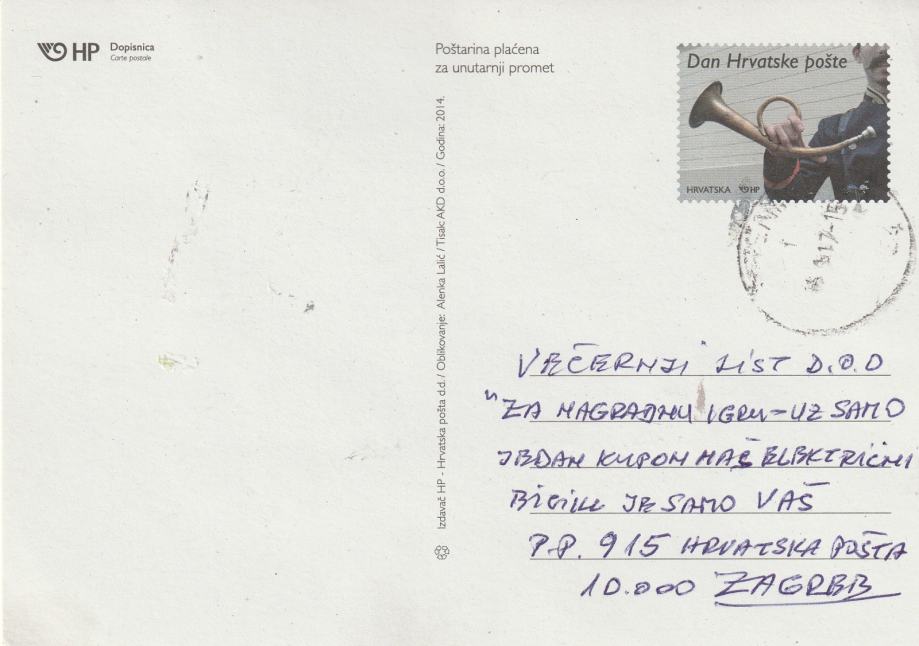 HP Dopisnica
Carte postale
Poštarina plaćena
za unutarnji promet
Dan Hrvatske pošte
HRVATSKA HP
17-15
Izdavač HP - Hrvatska pošta d.d. / Oblikovanje: Alenka Lalić / Tisak: AKD d.o.o. / Godina: 2014.
VEČERNJI LIST D.O.O
"ZA NAGRADNU IGRU-UZ SAMO
JEDAN KUPON NAŠ ELEKTRIČNI
BICIKL JE SAMO VAŠ
P.P. 915 HRVATSKA POŠTA
10.000 ZAGREB